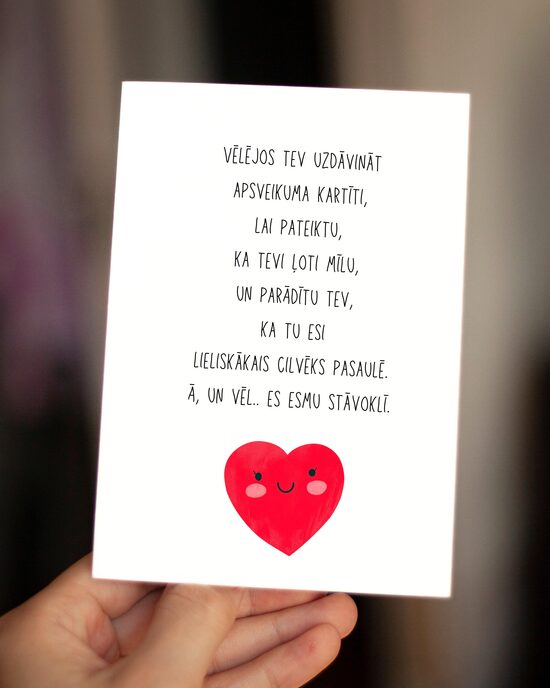 VĒLĒJOS TEV UZDĀVINĀT
APSVEIKUMA KARTĪTI,
LAI PATEIKTU,
KA TEVI ĻOTI MĪLU,
UN PARĀDĪTU TEV,
KA TU ESI
LIELISKĀKAIS CILVĒKS PASAULĒ.
Ā, UN VĒL.. ES ESMU STĀVOKLĪ.